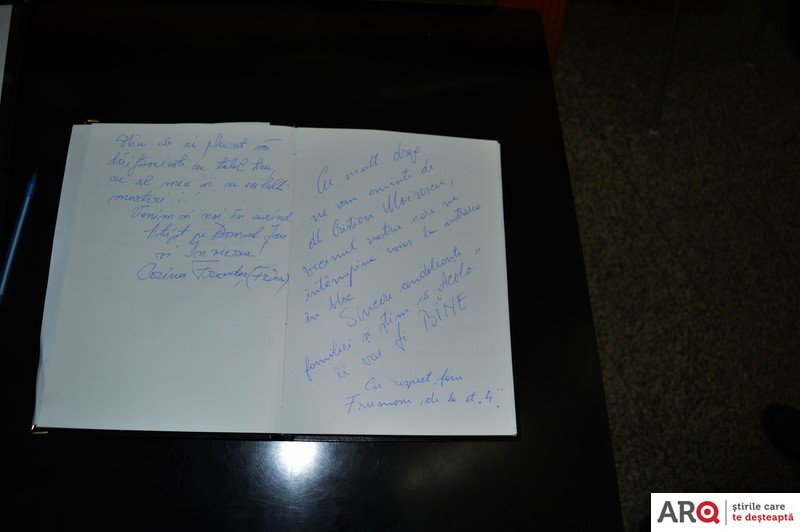 Știu că ai plecat să
cu tatăl tău,
cu al meu și cu ceilalți
Venim și noi în curînd
pe Domnul
și Învierea
Corina
Cu mult drag
ne vom aminti de
dl Cristian Moisescu,
vecinul nostru care ne
întâmpina voios la intrarea
în bloc
Sincere condoleanțe
familiei și știm că "Acolo"
îi va fi BINE
Cu respect, fam.
"de la et. 4".
ARQ
știrile care
te deșteaptă